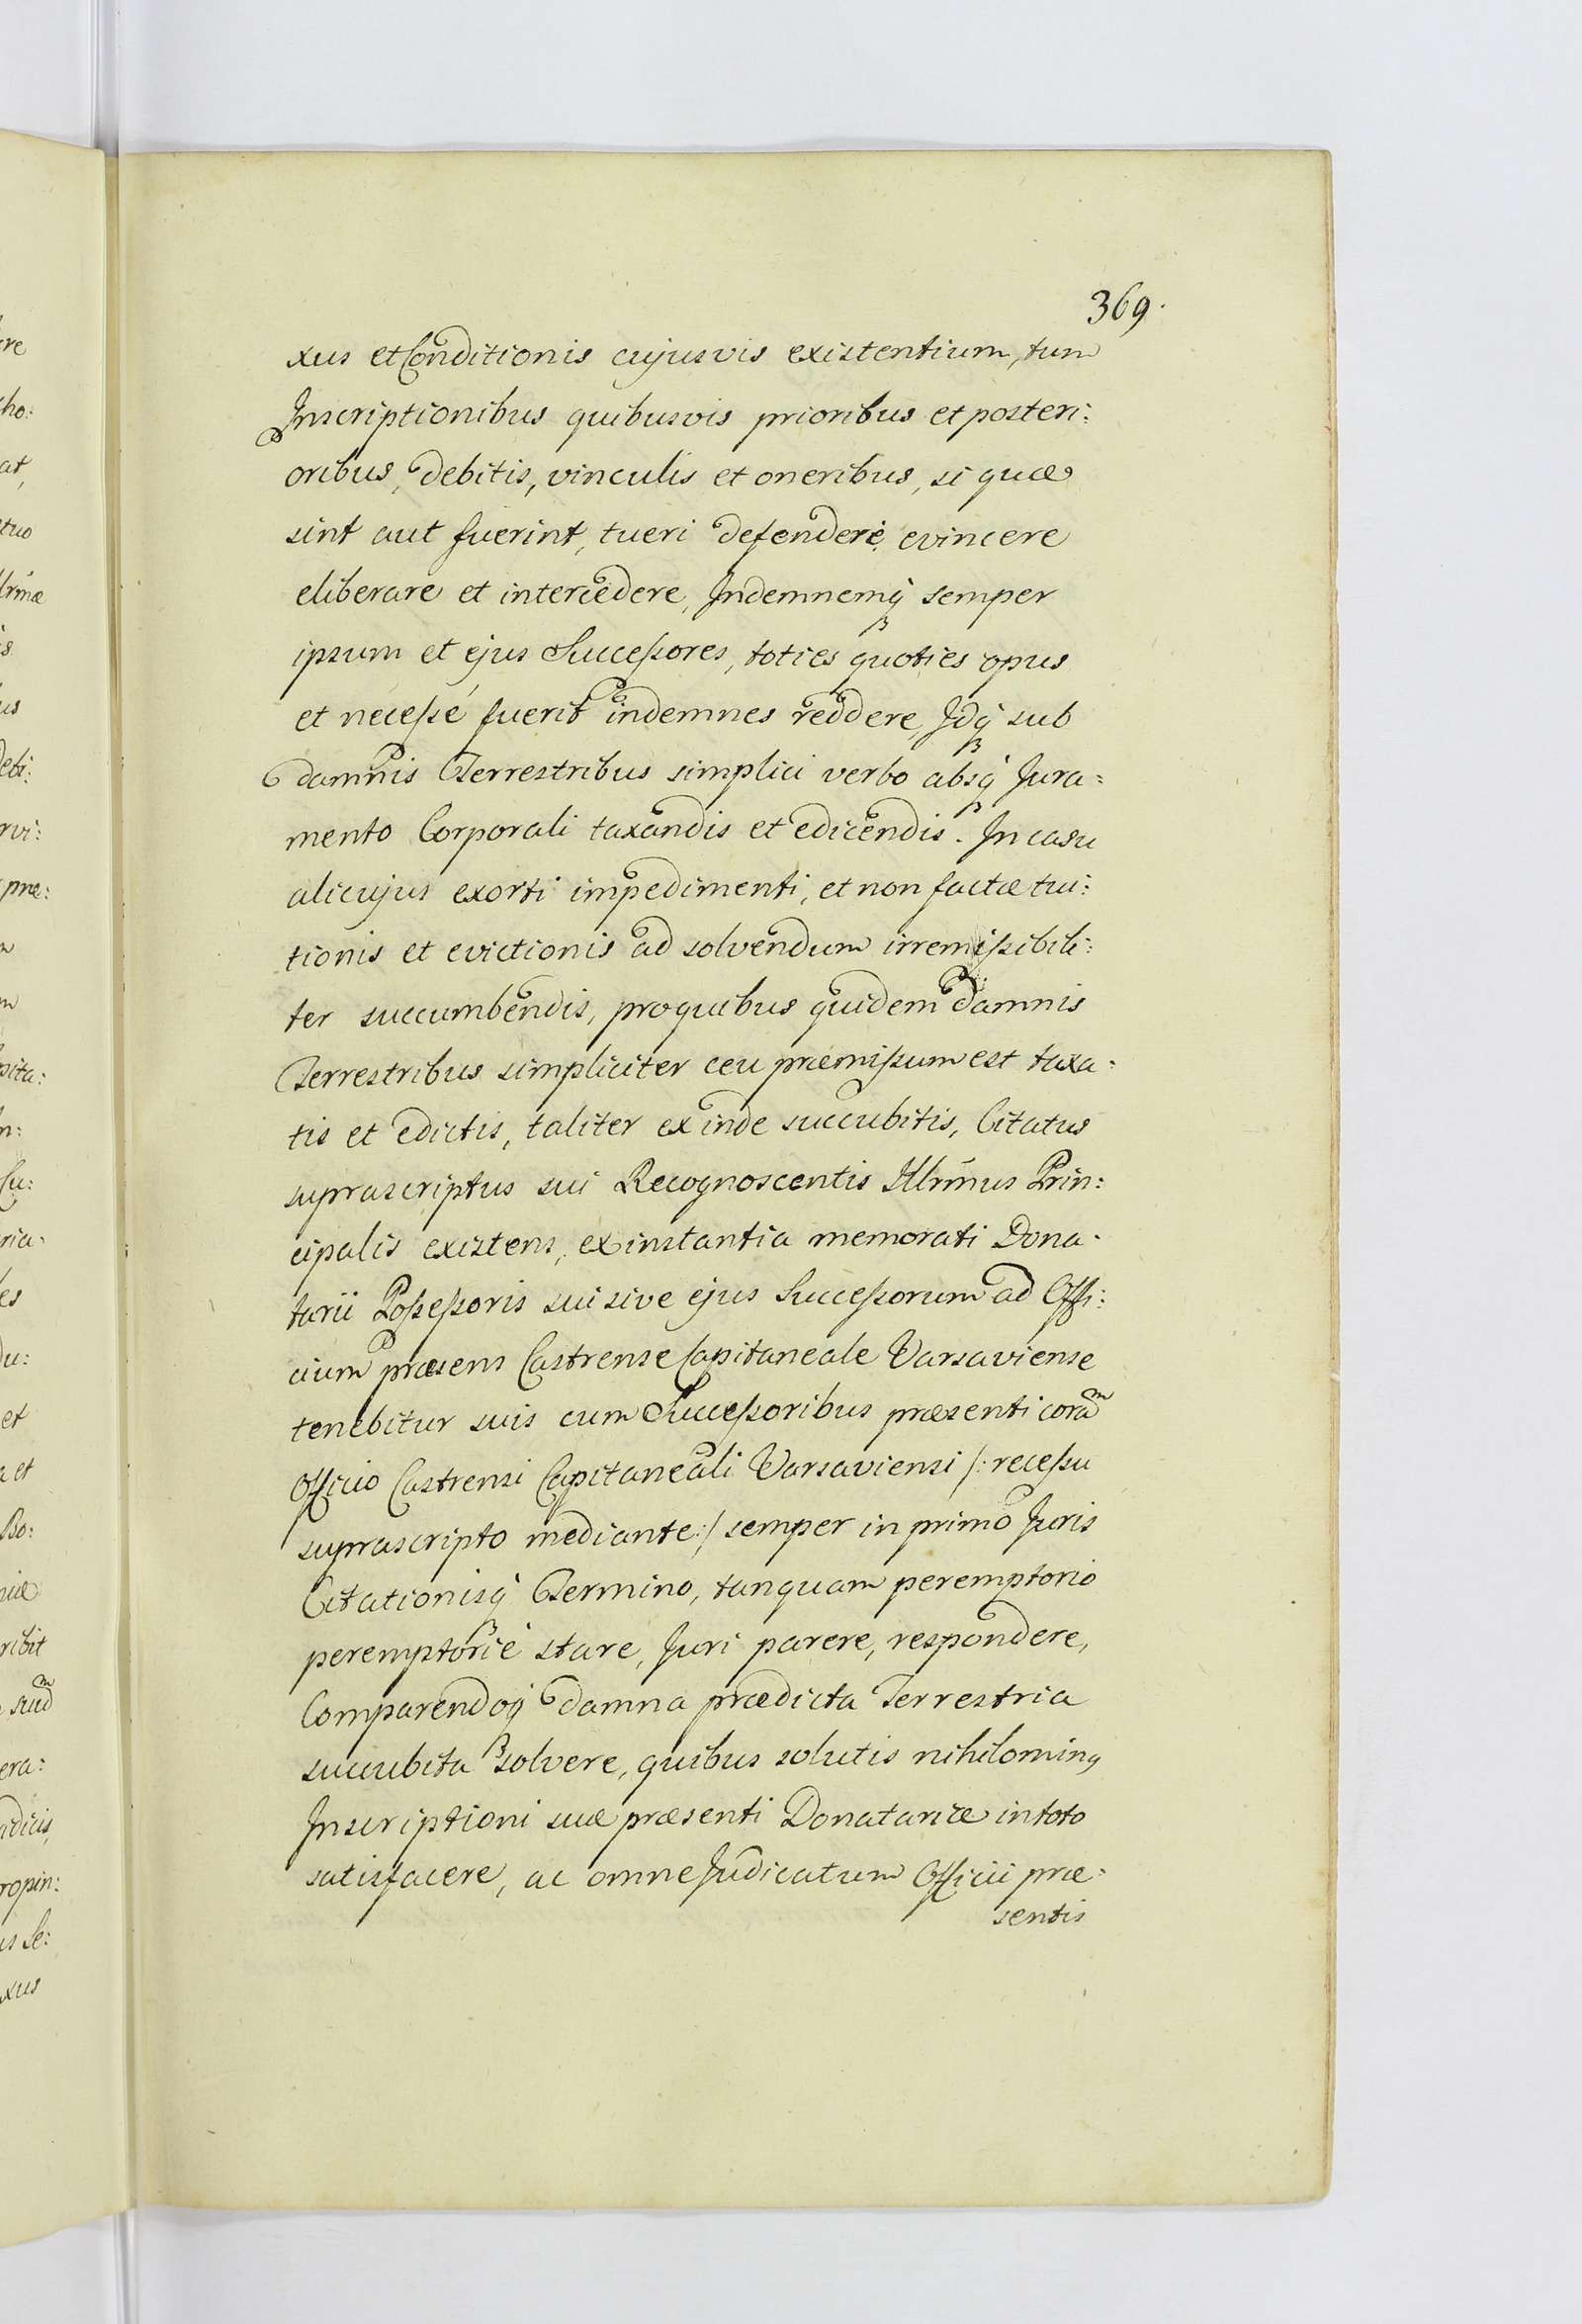 369.
xus et Conditionis cujusvis existentium, tum
Inscriptionibus quibusvis prioribus et posteri:
oribus, debitis, vinculis et oneribus, si quæ
sint aut fuerint, tueri defendere, evincere
eliberare et intercedere, Indemnemq́ semper
ipsum et ejus Succeßores, toties quoties opus
et neceßé fuerit indemnes reddere, Idq́ sub
damnis Terrestribus simplici verbo absq́ Jura:
mento Corporali taxandis et edicendis. In casu
alicujus exorti impedimenti, et non factæ tui:
tionis et evictionis ad solvendum irremißibili:
ter succumbendis, pro quibus quidem damnis
Terrestribus simpliciter ceu præmißum est taxa:
tis et edictis, taliter ex inde succubitis, Citatus
suprascriptus sui Recognoscentis Illrm̃us Prin:
cipalis existens, ex instantia memorati Dona:
tarii Poßeßoris sui sive ejus Succeßorum ad Offi:
cium præsens Castrense Capitaneale Varsaviense
tenebitur suis cum Succeßoribus præsenti corã
Officio Castrensi Capitaneali Varsaviensi /: receßu
suprascripto mediante :/ semper in primo Juris
Citationisq́ Termino, tanquam peremptorio
peremptorié stare, Juri parere, respondere,
Comparendoq́ damna prædicta Terrestria
succubita solvere, quibus solutis nihilominꝯ
Inscriptioni suæ præsenti Donatariæ in toto
satisfacere, ac omne Judicatum Officii præ:
sentis
ere
cho:
at,
etuo
is
us
debi:
rvi:
præ:
pita:
n:
Su:
ria:
es
du:
et
a et
Bo:
niæ
ribit
suũ
era:
ndicis,
ropin:
is Se:
xus